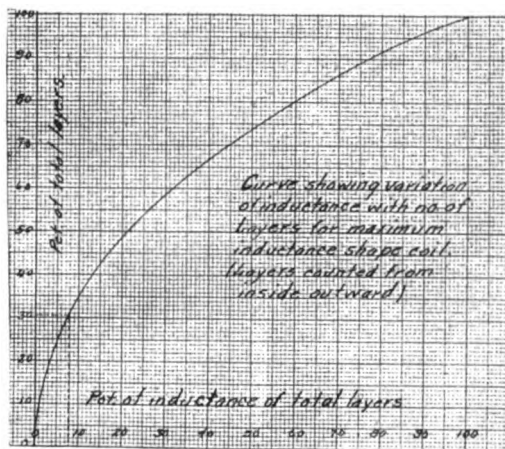 100
90
80
70
60
50
40
30
20
10
0
Pct of total layers.
Curve showing variation
of inductance with no of
layers for maximum
inductance shape coil.
(Layers counted from
inside outward)
Pct of inductance of total layers
0 10 20 30 40 50 60 70 80 90 100